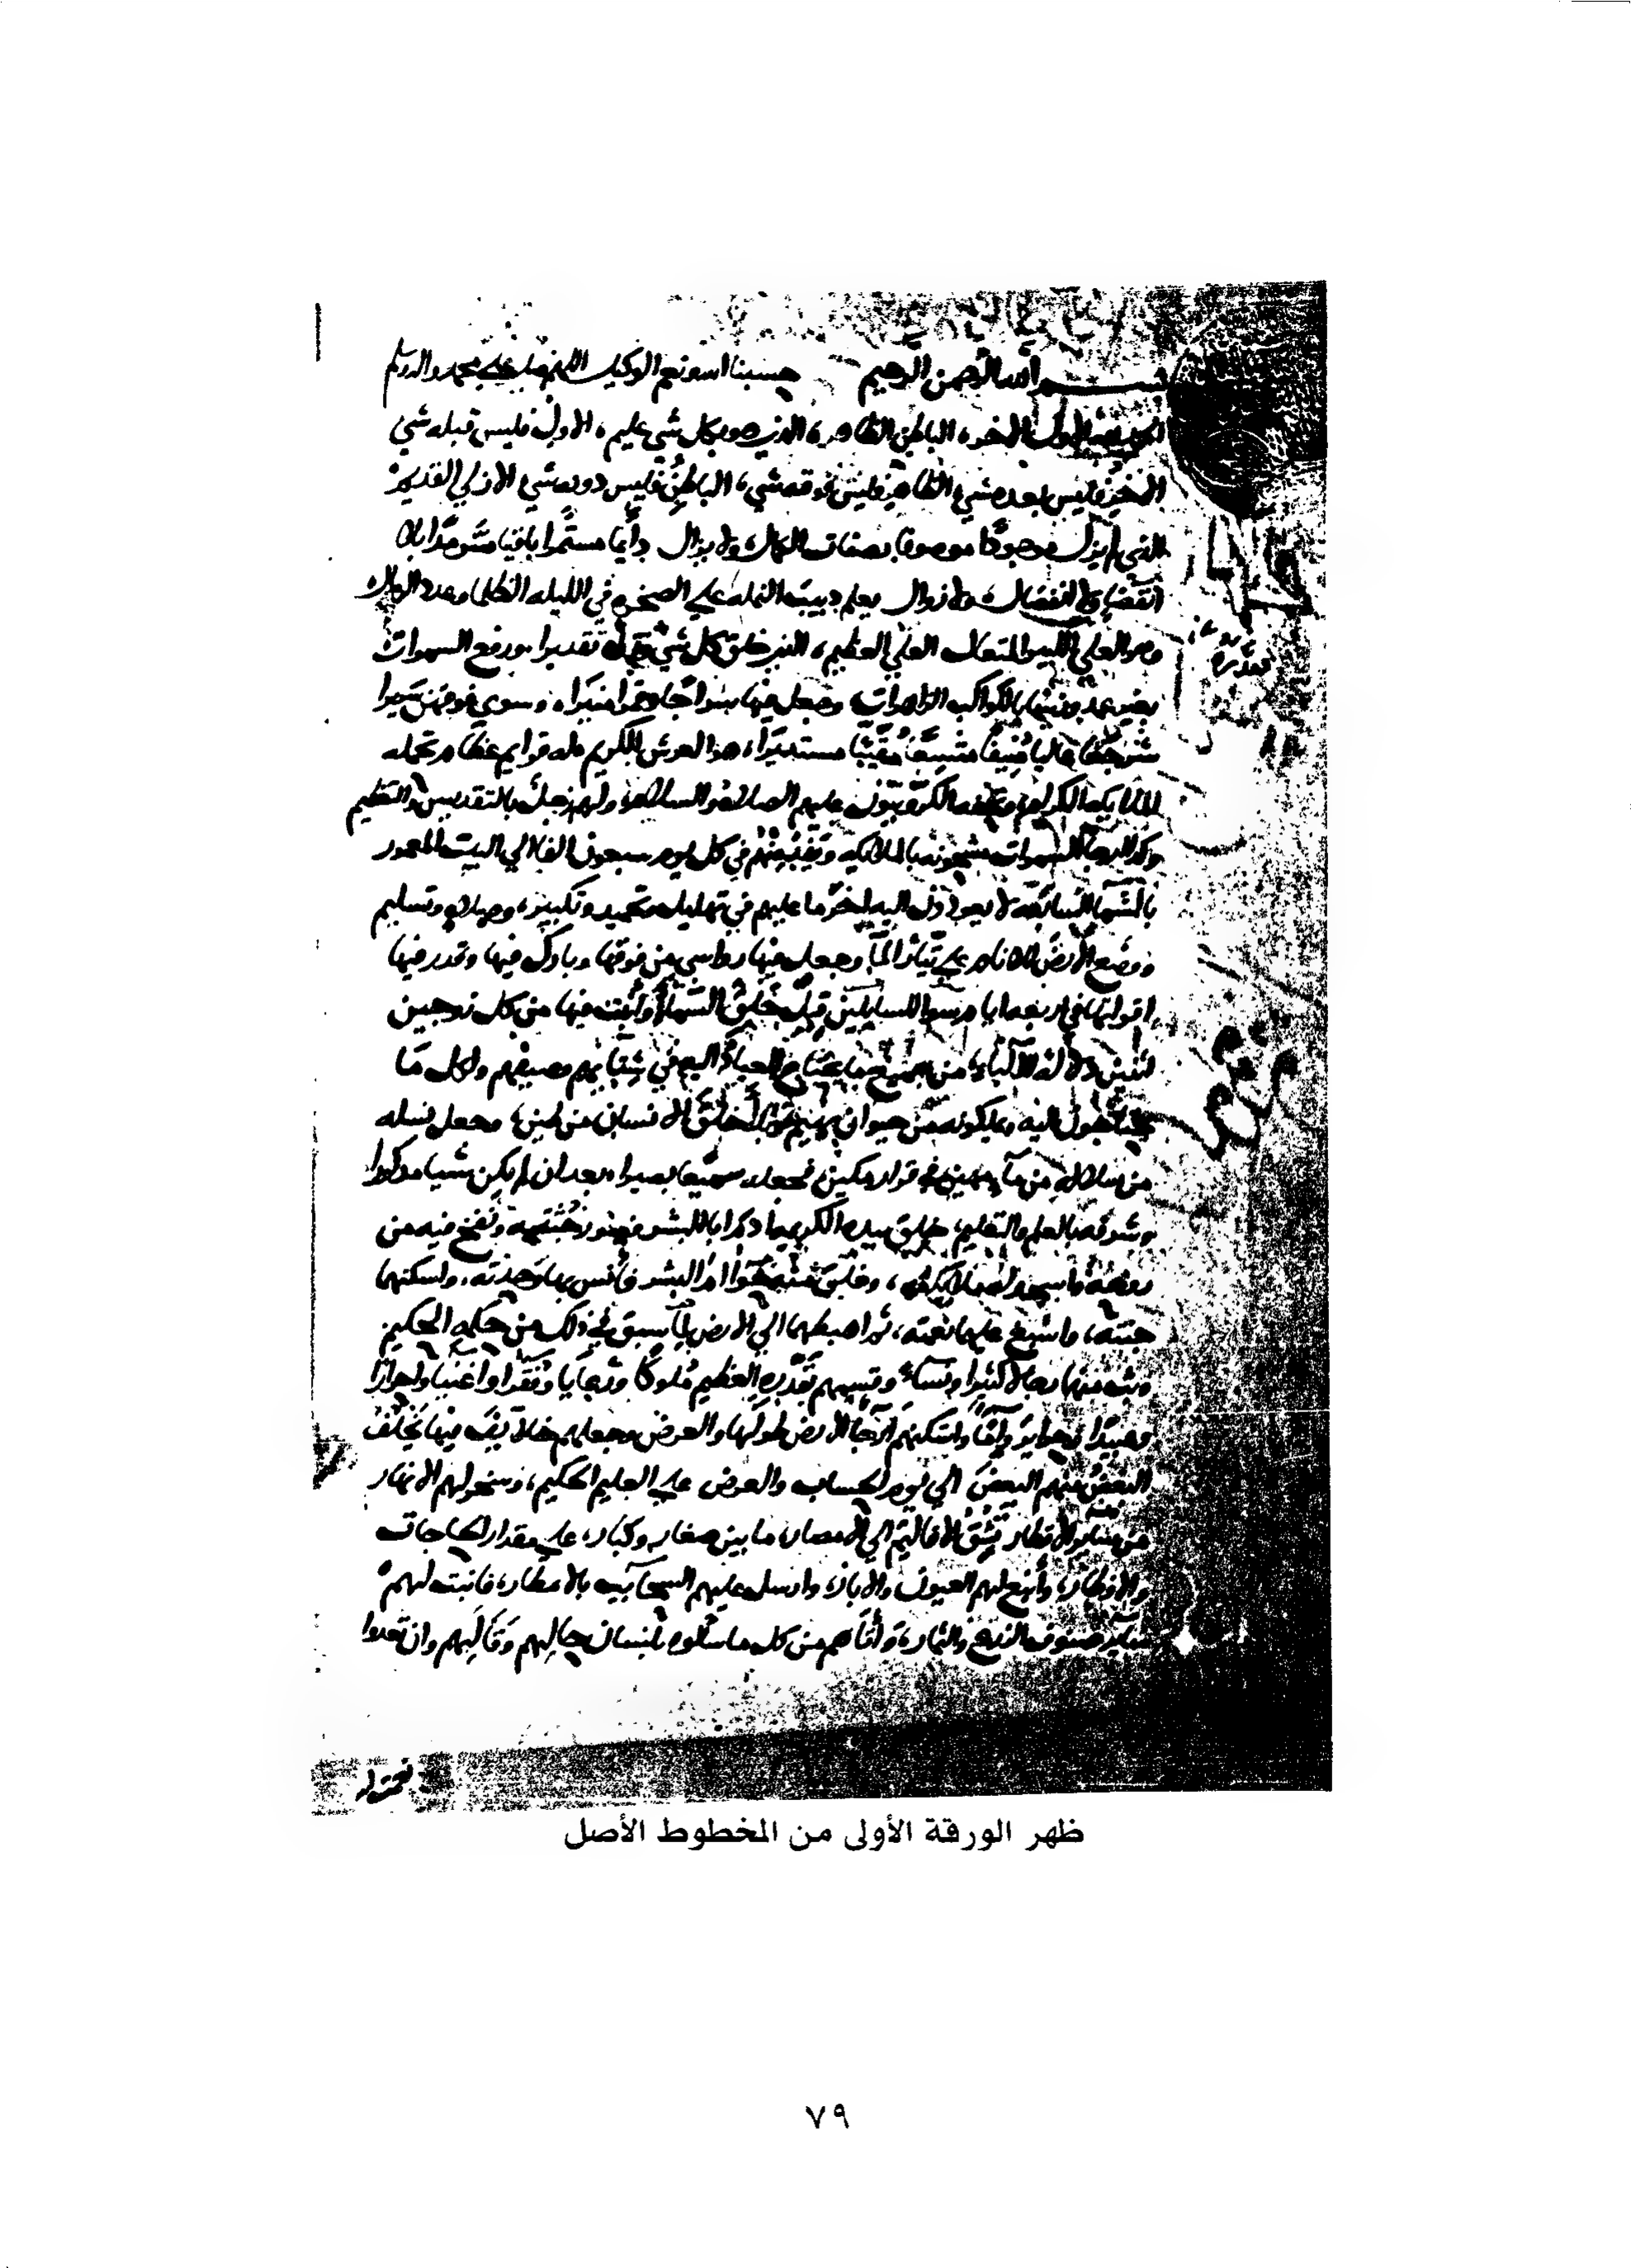 بسم الله الرحمن الرحيم حسبنا الله ونعم الوكيل اللهم صل على محمد واله وسلم
الحمد لله الاول الاخر، الباطن الظاهر، الذي هو بكل شي عليم، الاول فليس قبله شي
الاخر فليس بعده شي، الظاهر فليس فوقه شي، الباطن فليس دونه شي الازلي القديم
الذي لم يزل موجودا موصوفا بصفات الكمال ولا يزال دايما مستمرا باقيا سرمدا بلا
انقضا ولا انفصال ولا زوال يعلم دبيب النمله علي الصخره في الليله الظلما وعدد الرمال
وهو العلي الكبير المتعال العلي العظيم، الذي خلق كل شي فقدره تقديرا، ورفع السموات
بغير عمد وزينها بالكواكب الزاهرات وجعل فيها سراجا وقمرا منيرا، وسوي فوقهن سريرا
شرجعا عاليا منيفا متسعا مقببا مستديرا، هو العرش الكريم له قوايم عظام تحمله
الملايكه الكرام، وتحفه الكروبيون عليهم الصلاه والسلام، ولهم زجل بالتقديس والتعظيم
وكذا ارجا السموات مشحونه بالملايكه ويفد منهم في كل يوم سبعون الفا الي البيت المعمور
بالسما السابعه لا يعودون اليه اخر ما عليهم في تهليل وتحميد وتكبير، وصلاه وتسليم
ووضع الارض للانام علي تيار الما، وجعل فيها رواسي من فوقها وبارك فيها وقدر فيها
اقواتها في اربعه ايام سوا للسايلين قبل خلق السما، وانبت فيها من كل زوجين
اثنين دلاله للالبا، من جميع ما يحتاج العباد اليه في شتايهم وصيفهم ولكل ما
يحتاجون اليه ويملكونه من حيوان بهيم وبدا خلق الانسان من طين، وجعل نسله
من سلاله من ما مهين في قرار مكين فجعله سميعا بصيرا، بعد ان لم يكن شيا مذكورا
وشرفه بالعلم والتعليم، خلق بيده الكريمه ادم ابا البشر وصور جثته ونفخ فيه من
روحه واسجد له ملايكته، وخلق منه زوجه حوا ام البشر فانس بها وحدته، واسكنهما
جنته، واسبغ عليهما نعمته، ثم اهبطهما الي الارض لما سبق في ذلك من حكمه الحكيم
وبث منهما رجالا كثيرا ونسا، وقسمهم بقدره العظيم ملوكا ورعايا وفقرا واغنيا واحرارا
وعبيدا وحراير واما واسكنهم ارجا الارض طولها والعرض وجعلهم خلايف فيها يخلف
البعض منهم البعض الي يوم الحساب والعرض علي العليم الحكيم، وسخر لهم الانهار
من ساير الاقطار تشق الاقاليم الي الامصار ما بين صغار وكبار، علي مقدار الحاجات
والاوطار، وانبع لهم العيون والابار، وارسل عليهم السحايب بالامطار، فانبت لهم
ساير صنوف الزرع والثمار، واتاهم من كل ما سالوه بلسان حالهم وقالهم وان تعدوا
ظهر الورقة الأولى من المخطوط الأصل
٧٩